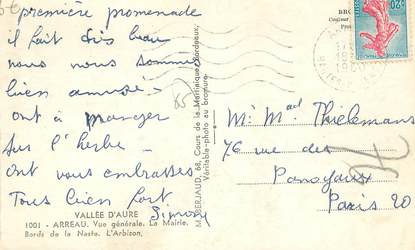 première promenade
il fait très beau
nous nous sommes
bien amusé.
ont à manger
sur l'herbe
ont vous embrasses
Tous bien fort
Simon
VALLÉE D'AURE
1001 - ARREAU. Vue générale. La Mairie.
Bords de la Neste. L'Arbizon.
68, Cours de la Martinique, Bordeaux,
Véritable-photo au bromure.
20F
Mr Mme Thielemans
76 rue des
Panoyaux
Paris 20